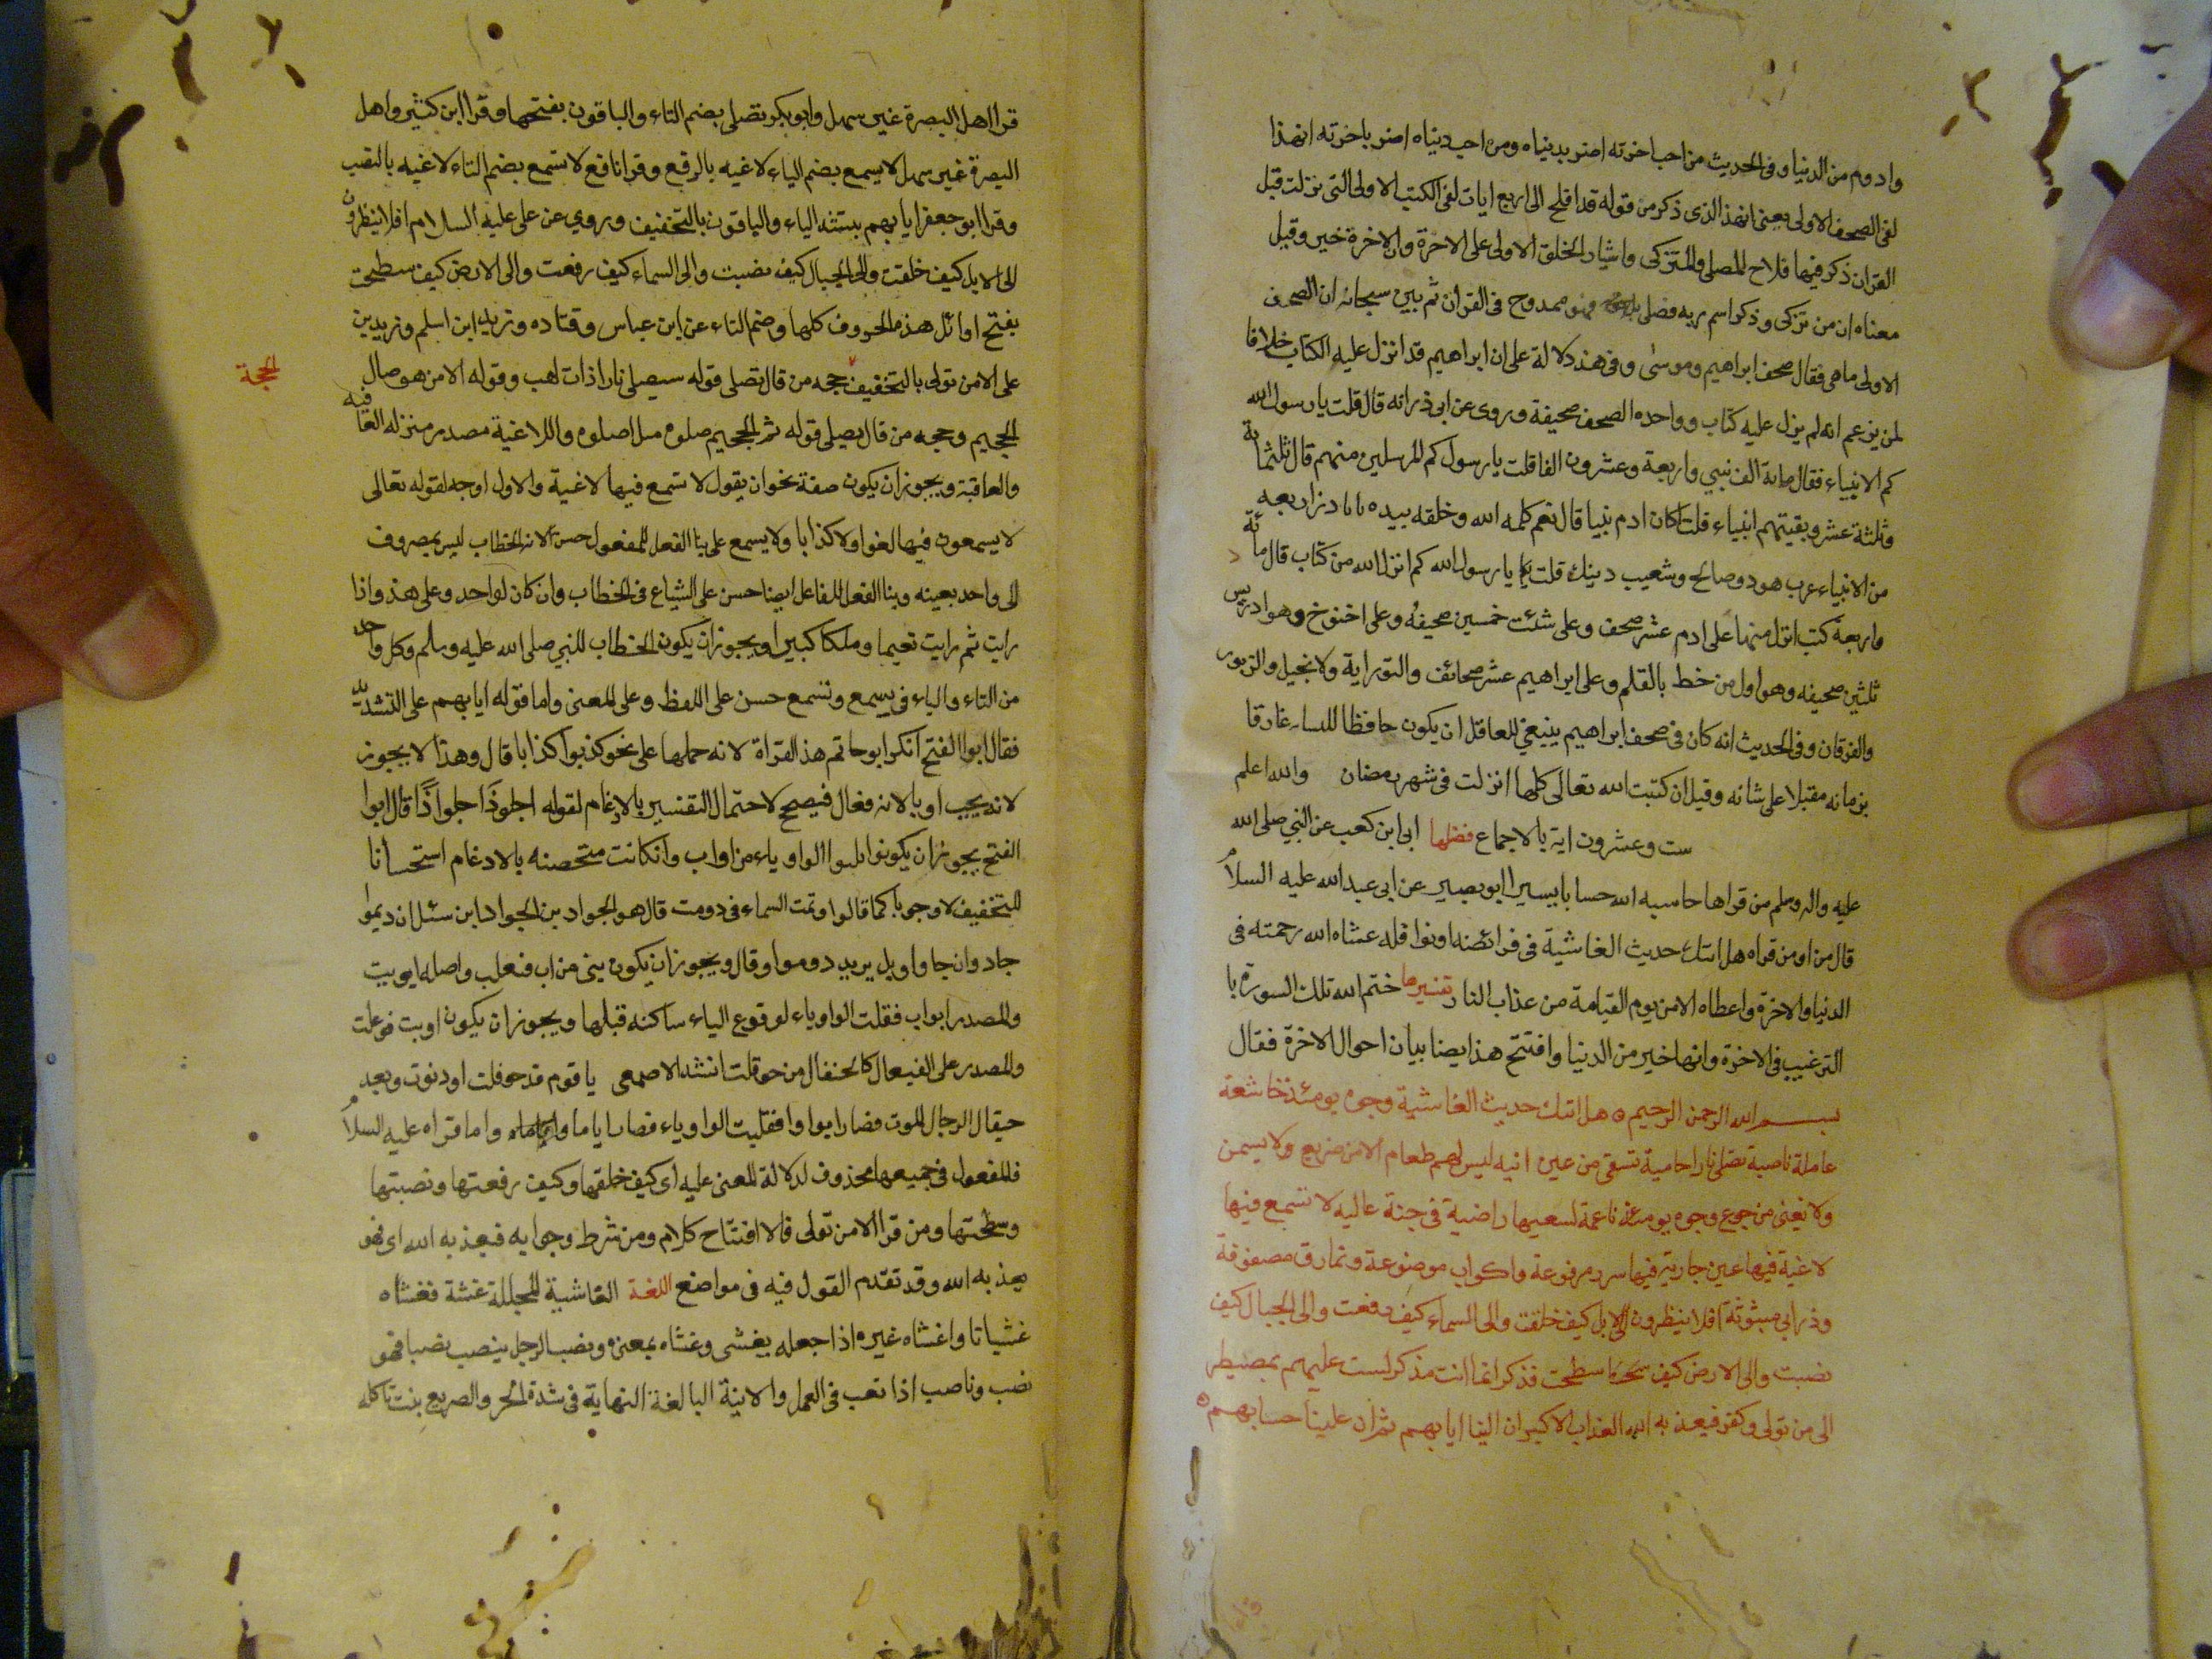 وادوم من الدنيا وفى الحديث من احب اخرته اضر بدنياه ومن احب دنياه اضر باخرته ان هذا
لفى الصحف الاولى يعنى ان هذا الذى ذكر من قوله قد افلح الى اربع ايات لفى الكتب الاولى التى نزلت قبل
القران ذكر فيها فلاح المصلى والمتزكى واشار الخلق الاولى على الاخرة وان الاخرة خير وقيل
معناه ان من تزكى وذكر اسم ربه فصلى فهو ممدوح فى القران ثم بين سبحانه ان الصحف
الاولى ماهى فقال صحف ابراهيم وموسى وفى هذه دلالة على ان ابراهيم قد انزل عليه الكتاب خلافا
لمن يزعم انه لم ينزل عليه كتاب وواحده الصحف صحيفة وروى عن ابى ذر انه قال قلت يا رسول الله
كم الانبياء فقال مائة الف نبي واربعة وعشرون الفا قلت يا رسول كم المرسلين منهم قال ثلثمائة
وثلثة عشر وبقيتهم انبياء قلت اكان ادم نبيا قال نعم كلمه الله وخلقه بيده يا ابا ذر اربعه
من الانبياء عرب هود وصالح وشعيب ونبيك قلت يا رسول الله كم انزل الله من كتاب قال مائة
واربعة كتب انزل منها على ادم عشر صحف وعلى شئت خمسين صحيفه وعلى اخنوخ وهو ادريس
ثلثين صحيفه وهو اول من خط بالقلم وعلى ابراهيم عشر صحائف والتوراية ولانجيل والزبور
والفرقان وفى الحديث انه كان فى صحف ابراهيم ينبغي للعاقل ان يكون حافظا للسانه عارفا
بزمانه مقبلا على شانه وقيل ان كتبت الله تعالى كلها انزلت فى شهر رمضان والله اعلم
ست وعشرون اية بالاجماع فضلها ابى ابن كعب عن النبي صلى الله
عليه واله وسلم من قراها حاسبه الله حسابا يسيرا ابو بصير عن ابى عبد الله عليه السلام
قال من اومن قراه هل اتتك حديث الغاشية فى فرائضه او نوافله غشاه الله رحمته فى
الدنيا والاخرة واعطاه الامن يوم القيامة من عذاب النار تفسيرها ختم الله تلك السورة با
الترغيب فى الاخرة وانها خير من الدنيا وافتتح هذ ايضا بيان احوال الاخرة فقال
بسم الله الرحمن الرحيم هل اتتك حديث الغاشية وجوه يومئذ خاشعة
عاملة ناصبة تصلى نارا حامية تسقى من عين انيه ليس لهم طعام الا من ضريع ولا يسمن
ولا يغنى من جوع وجوه يومئذ ناعمة لسعيها راضية فى جنة عاليه لا تسمع فيها
لاغية فيها عين جارية فيها سرر مرفوعة واكواب موضوعة ونمارق مصفوفة
وذرابي مبثوثة افلا ينظرون الى الابل كيف خلقت والى السماء كيف رفعت والى الجبال كيف
نصبت والى الارض كيف سطحت فذكر انما انت مذكر لست عليهم بمصيطر
الى من تولى وكفر فيعذ به الله العذاب الاكبر ان الينا ايا بهم ثم ان علينا حسابهم
قرا اهل البصرة غير سهل وابو بكر تصلى بضم التاء والباقون بفتحها وقرا ابن كثير واهل
البصرة غير سهل لا يسمع بضم الياء لاغيه بالرفع وقرا نافع لا تسمع بضم التاء لاغيه بالنصب
وقرا ابو جعفر ايابهم بتشد الياء والباقون بالتخفيف وروي عن على عليه السلام افلا ينظرون
الى الابل كيف خلقت والى الجبال كيف نصبت والى السماء كيف رفعت والى الارض كيف سطحت
بفتح اوائل هذه الحروف كلها وضم التاء عن ابن عباس وقتاده وزيد ابن اسلم وزيد بن
على الا من تولى بالتخفيف حجه من قال تصلى قوله سيصلى نارا ذات لهب وقوله الا من هو صال
الحجة
الجحيم وحجه من قال تصلى قوله ثم الجحيم صلوه مثل اصلوه واللاغية مصدر منزله العافيه
والعاقبة ويجوز ان يكون صفة نحو ان يقول لا تسمع فيها لاغية والاول اوجه لقوله تعالى
لا يسمعون فيها لغوا ولا كذابا ولا يسمع على بنا الفعل للمفعول حسن لان الخطاب ليس بمصروف
الى واحد بعينه وبنا الفعل للفاعل ايضا حسن على الشياع فى الخطاب وان كان لواحد وعلى هذ واذا
رايت ثم رايت نعيما وملكا كبيرا ويجوز ان يكون الخطاب للنبي صلى الله عليه وسلم وكل واحد
من التاء والياء فى يسمع وتسمع حسن على اللفظ وعلى المعنى واما قوله ايابهم على التشديد
فقال ابوا الفتح انكر ابو حاتم هذ القراة لانه حملها على نحو كذبوا كذابا قال وهذا لا يجوز
لانه يجب اوبا لانه فعال فيصح لاحتمال التفسير بالادغام لقوله اجلوذ اجلواذا قال ابوا
الفتح يجوز ان يكونوا قلبوا الواو ياء من اواب وان كانت متحصنه بالادغام استحسانا
للتخفيف لا وجوبا كما قالوا ديمت السماء فى دومت قال هو الجواد بن الجواد ابن سئل ان ديموا
جاد وان جاد اوبل يريد دوموا وقال ويجوز ان يكون بنى من اب فيعلب واصله ايوبيت
والمصدر ايواب فقلت الواو ياء لوقوع الياء ساكنه قبلها ويجوز ان يكون اوبت فوعلت
والمصدر على الفيعال كالحنفال من حوقلت انشد الاصمعى يا قوم قد حوقلت او دنوت وبعد
حيقال الرجال الموت فصار ايوابا فقلبت الواو ياء فصار ايابا واما قراه عليه السلام
فالمفعول فى جميعها محذوف لدلالة المعنى عليه اى كيف خلقها وكيف رفعتها ونصبتها
وسطحتها ومن قرا الا من تولى فالا افتتاح كلام ومن شرط وجوابه فيعذ به الله اى فهو
يعذ به الله وقد تقدم القول فيه فى مواضع اللغة الغاشية المجللة غشة فغشاه
غشيانا واغشاه غيره اذا جعله يغشى وغشاه بمعنى ونصب الرجل ينصب نصبا فهو
نصب وناصب اذا تعب فى العمل والانية البالغة النهاية فى شدة الحر والضريع بنت تاكله